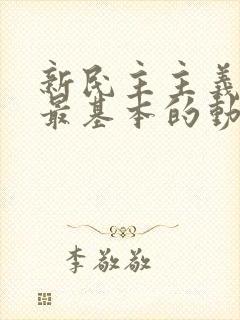 新民主主義
最基本的動
李敬敬